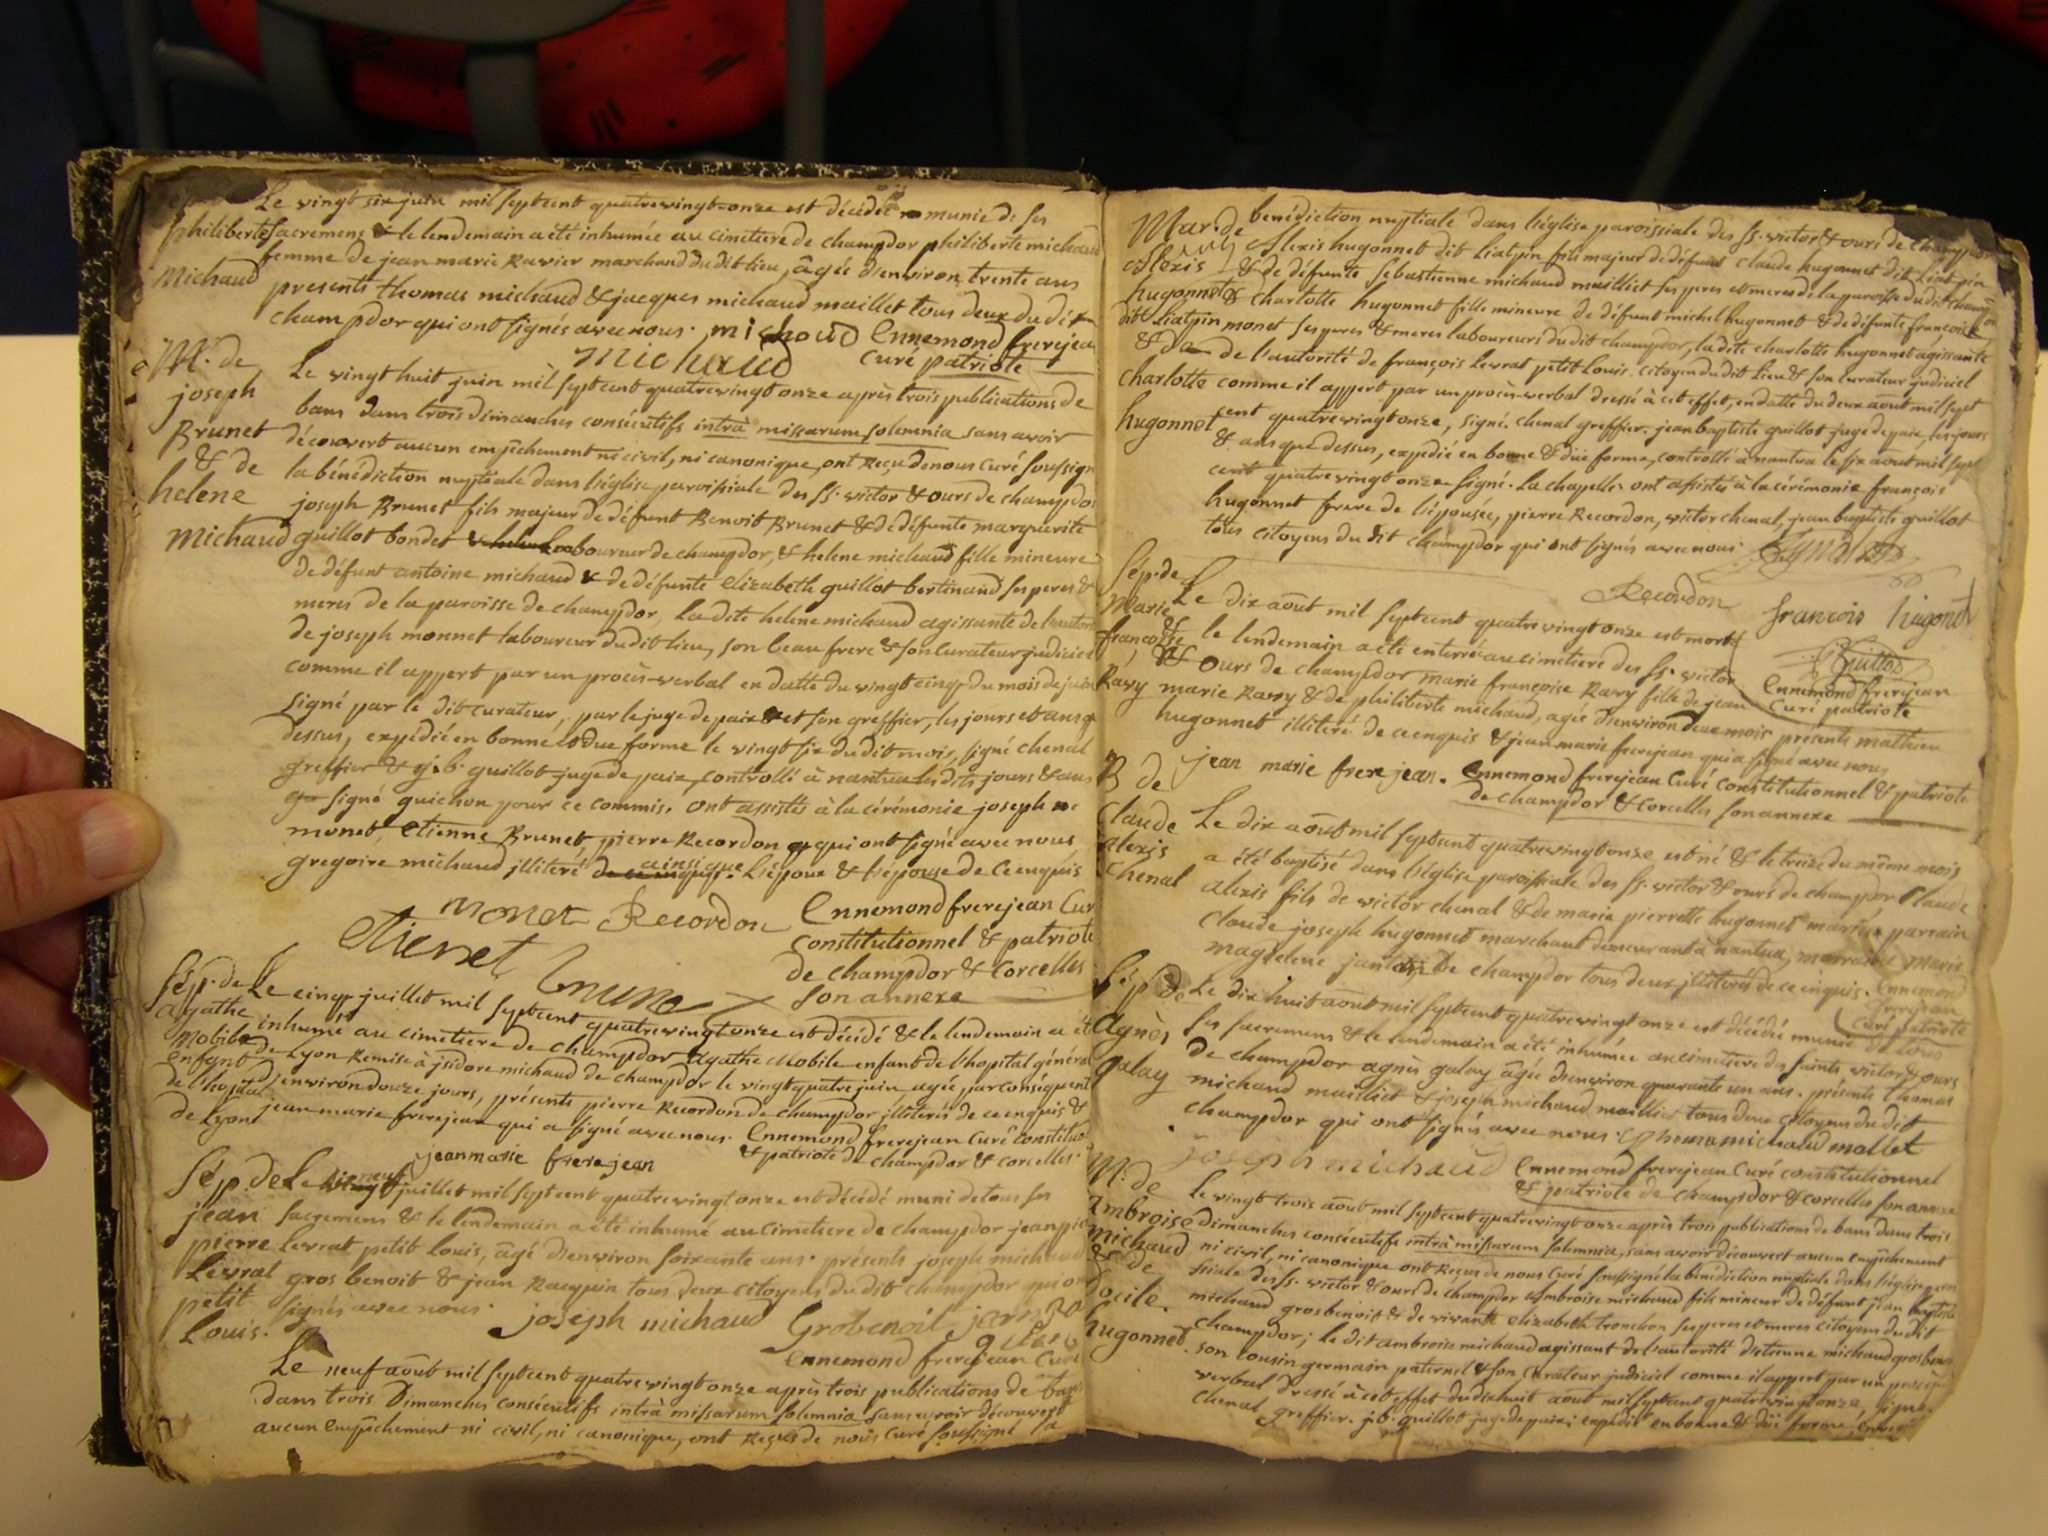 Le vingt six juin mil septcent quatrevingt-onze est décédée munie de ses
philiberte sacremens & le lendemain a été inhumée au cimetiere de champdor philiberte michaud
femme de jean marie Ravier marchand du dit lieu, âgée d'environ trente ans
Michaud presents thomas michaud & jacques michaud maillet tous deux du dit
champdor qui ont signés avec nous. michaud Ennemond frerejean
michaud curé patriote
M. de
joseph
Brunet
& de
helene
Michaud
Le vingt huit juin mil septcent quatrevingt onze après trois publications de
bans dans trois dimanches consécutifs intra missarum solemnia sans avoir
découvert aucun empêchement ni civil, ni canonique, ont Reçu de nous curé soussigné
la bénédiction nuptiale dans l'église paroissiale des ss. victor & ours de champdor
joseph Brunet fils majeur de défunt Benoit Brunet & de défunte marguerite
guillot bondet laboureur de champdor, & helene michaud fille mineure
de défunt antoine michaud & de défunte elizabeth guillot bertinand ses peres &
meres de la paroisse de champdor, La dite helene michaud agissante de l'autorité
de joseph monnet laboureur du dit lieu, son beau frere & son curateur judiciel
comme il appert par un procès-verbal en datte du vingt cinq du mois de juin
signé par le dit curateur, par le juge de paix et son greffier, les jours et ans que
dessus, expédié en bonne & due forme le vingt six du dit mois, signé chenal
greffier & j.b. guillot juge de paix, controllé à nantua les dits jours & ans
signé guichon pour ce commis. ont assistés à la cérémonie joseph
monet, etienne Brunet, pierre Recordon qui ont signé avec nous
gregoire michaud illiteré ainsi que l'époux & l'épouse de ce enquis
monet Recordon Ennemond frerejean Curé
Etienet Brunet constitutionnel & patriote
de champdor & Corcelles
son annexe
Sép. de
agathe
Mobile
enfant
de l'hopital
de Lyon
Le cinq juillet mil septcent quatrevingt onze est décédé & le lendemain a été
inhumé au cimetiere de champdor Agathe Mobile enfant de l'hopital général
de Lyon Remise à isidore michaud de champdor le vingt quatre juin agée par consequent
d'environ douze jours, présents pierre Recordon de champdor illiterés de ce enquis &
jean-marie frerejean qui a signé avec nous. Ennemond frerejean curé constitu
jeanmarie frere jean & patriote de champdor & corcelles
Sép. de
jean
pierre
Levrat
petit
Louis.
Le neuf juillet mil septcent quatrevingt onze est décédé muni de tous ses
sacremens & le lendemain a été inhumé au cimetiere de champdor jean pierre
Levrat petit Louis, âgé d'environ soixante ans. présents joseph michaud
gros benoit & jean Racquin tous deux citoyens du dit champdor qui ont
signés avec nous. joseph michaud Grobenoit jean Ra
Ennemond frerejean curé
Le neuf août mil septcent quatrevingt onze après trois publications de bans
dans trois Dimanches consécutifs intrà missarum solemnia sans avoir découvert
aucun empêchement ni civil, ni canonique, ont Reçus de nous curé soussigné la
Mar. de
Alexis
hugonnet
dit Liatpin
& de
charlotte
hugonnet
bénédiction nuptiale dans l'église paroissiale des ss. victor & ours de champdor
Alexis hugonnet dit Liatpin fils majeur de défunt claude hugonnet dit Liatpin
& de défunte sebastienne michaud mailliet ses peres et meres de la paroisse du dit champdor
& charlotte hugonnet fille mineure de défunt michel hugonnet & de défunte françoise
monet ses peres & meres laboureurs du dit champdor, la dite charlotte hugonnet agissante
de l'autorité de françois Levrat petit Louis citoyen du dit Lieu & son curateur judiciel
comme il appert par un procès-verbal dressé à cet effet, en datte du deux août mil sept
cent quatrevingt onze, signé. chenal greffier. jean baptiste guillot juge de paix, les jours
& ans que dessus, expedié en bonne & due forme, controllé à nantua le six août mil sept
cent quatrevingt onze signé. La chapelle. ont assistés à la cérémonie françois
hugonnet frere de l'épousée, pierre Recordon, victor chenal, jean baptiste guillot
tous citoyens du dit champdor qui ont signés avec nous
Recordon françois hugonet
Guillot
Ennemond frerejean
Curé patriote
Sép. de
Marie
françoise
Ravy
Le dix août mil septcent quatrevingt onze est morte
& le lendemain a été enterré au cimetiere des ss. victor
& ours de champdor marie françoise Ravy fille de jean
marie Ravy & de philiberte michaud, agée d'environ deux mois présents mathieu
hugonnet illiteré de ce enquis & jean marie frerejean qui a signé avec nous
jean marie frere jean. Ennemond frerejean Curé constitutionnel & patriote
de champdor & Corcelles son annexe
B. de
Claude
alexis
chenal
Le dix août mil septcent quatrevingt onze est né & le treize du même mois
a été baptisé dans l'église paroissiale des ss. victor & ours de champdor Claude
alexis fils de victor chenal & de marie pierrette hugonnet mariés parrain
claude joseph hugonnet marchand demeurant à nantua, marraine marie
magdelene de champdor tous deux illiterés de ce enquis. Ennemond
frerejean
Curé patriote
Sép. de
Agnès
galay
Le dix huit août mil septcent quatrevingt onze est décédé munie de tous
ses sacremens & le lendemain a été inhumée au cimetiere des saints victor & ours
de champdor agnès galay âgée d'environ quarante un ans. présents thomas
michaud mailliet & joseph michaud mailliet tous deux citoyens du dit
champdor qui ont signés avec nous. thomas michaud mallet
joseph michaud Ennemond frerejean Curé constitutionnel
& patriote de champdor & corcelles son annexe
M. de
Ambroise
Michaud
& de
docile
hugonnet
Le vingt trois août mil septcent quatrevingt onze après trois publications de bans dans trois
dimanches consécutifs intrà missarum solemnia, sans avoir découvert aucun empêchement
ni civil, ni canonique ont Reçus de nous curé soussigné la bénédiction nuptiale dans l'église parois
siale des ss. victor & ours de champdor Ambroise michaud fils mineur de défunt jean baptiste
michaud gros benoit & de vivante elizabeth tronchon ses peres et meres citoyens du dit
champdor; Le dit ambroise michaud agissant de l'autorité d'etienne michaud gros benoit
son cousin germain paternel & son curateur judiciel comme il appert par un procès
verbal dressé à cet effet du dix huit août mil septcent quatrevingt onze, signé.
chenal greffier. j.b. guillot juge de paix; expédié en bonne & due forme,